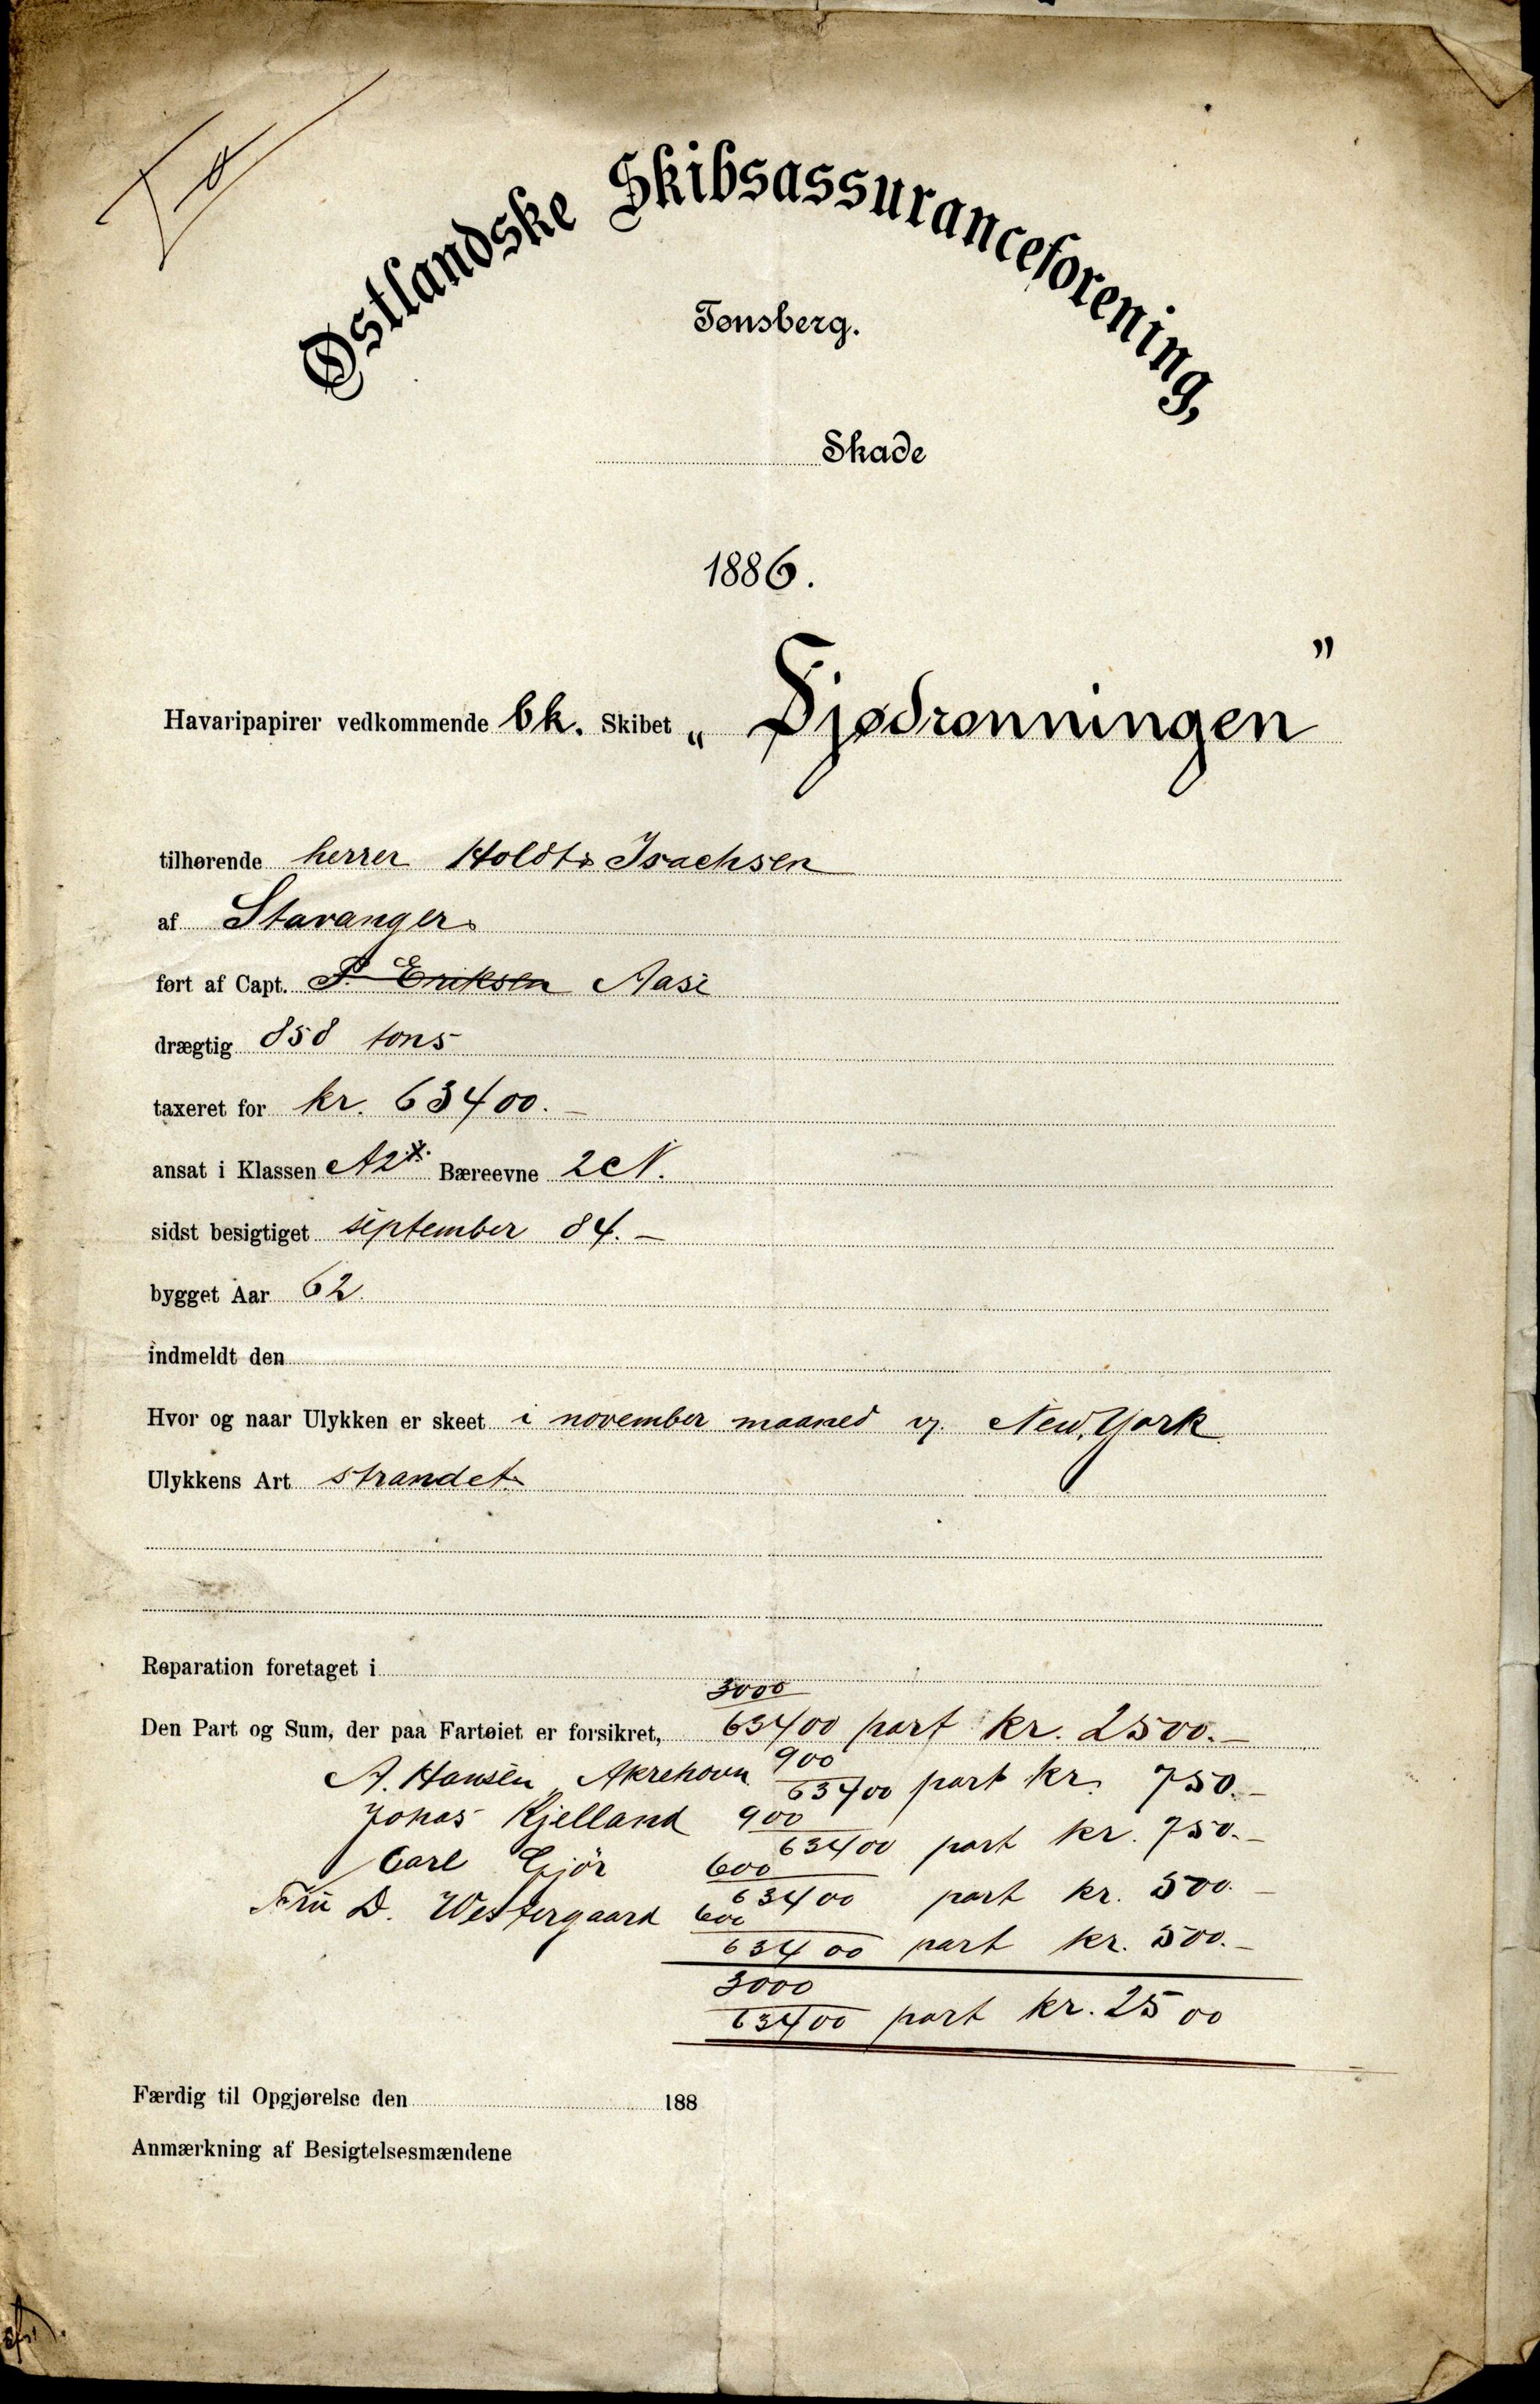 Østlandske Skibsassuranceforening,
Tønsberg.
Skade
1886.
Havaripapirer vedkommende bk. Skibet „ Sjødronningen "
tilhørende herrer Holdt & Isachsen
af Stavanger
ført af Capt. P. Eriksen Aase
drægtig 858 tons
taxeret for kr. 63400.—
ansat i Klassen A2*. Bæreevne 2 N.
sidst besigtiget september 84.—
bygget Aar 62
indmeldt den
Hvor og naar Ulykken er skeet i november maaned v. New York
Ulykkens Art strandet.
Reparation foretaget i
Den Part og Sum, der paa Fartøiet er forsikret, 3000/63400 part kr. 2500.—
A. Hansen, Akrehovn 900/63400 part kr. 750.—
Jonas Kjelland 900/63400 part kr. 750.—
Carl Gjör 600/63400 part kr. 500.—
Fru D. Westergaard 600/63400 part kr. 500.—
3000/63400 part kr. 2500
Færdig til Opgjørelse den 188
Anmærkning af Besigtelsesmændene